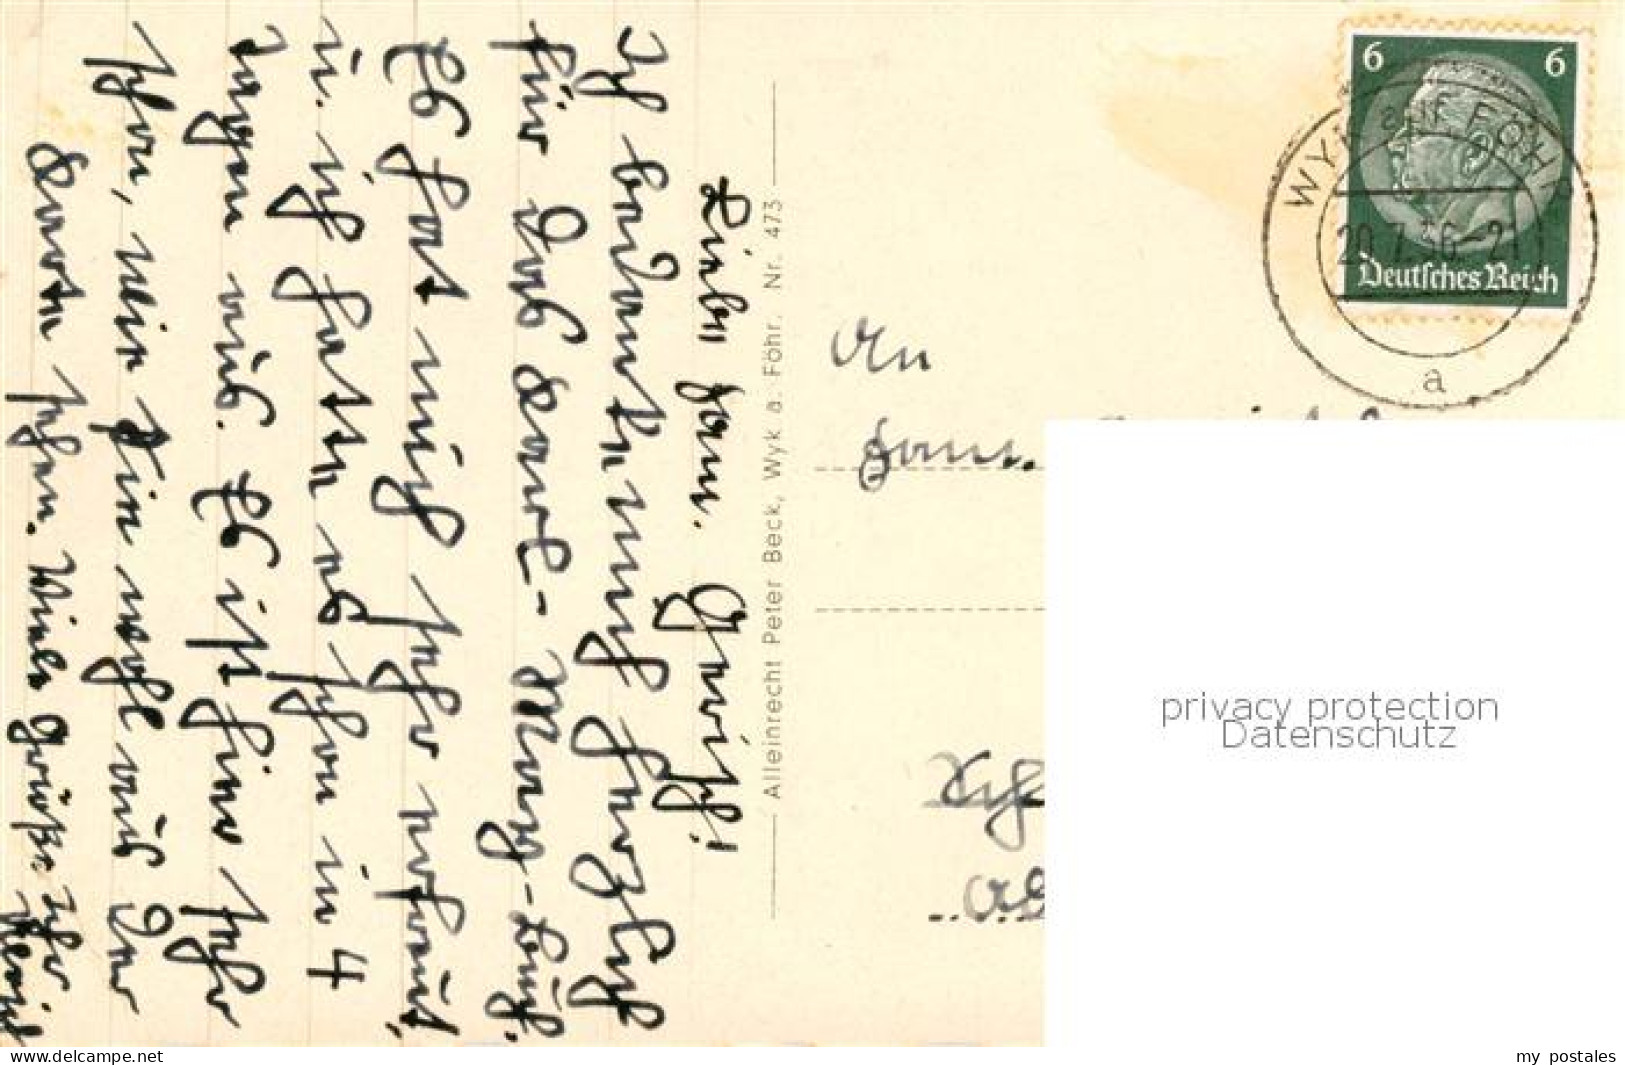 Liebe Frau. Gerisch!
Ich bedanke mich herzlich
für das Karl-May-Buch.
Es hat mich sehr erfreut,
u. ich hatte es schon in 4
Tagen aus. Es ist hier sehr
schön, wie Sie wohl aus der
Karte sehen. Viele Grüße Ihr
Alleinrecht Peter Beck, Wyk a. Föhr. Nr. 473
6 6
Deutsches Reich
WYK auf FÖHR
20.7.36-21
a
An
Frau.
privacy protection
Datenschutz
www.delcampe.net
my_postales